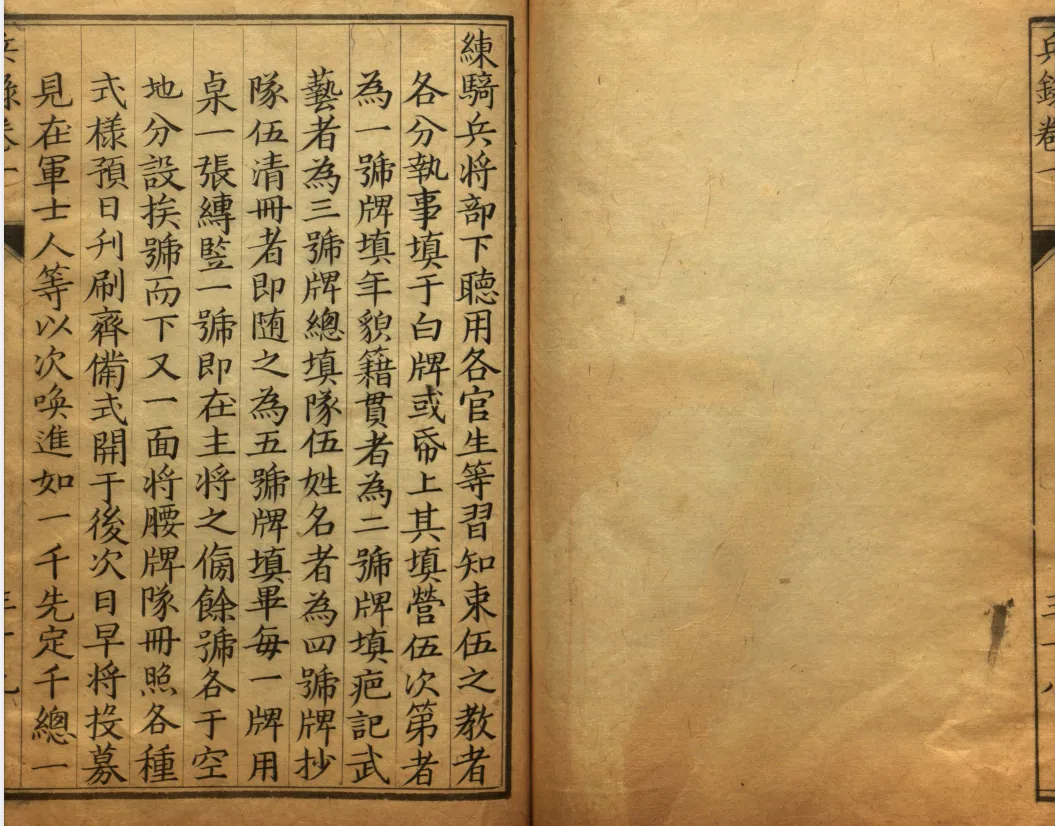 兵錄卷一 三十八
練騎兵将部下聽用各官生等習知束伍之教者
各分執事填于白牌或帋上其填營伍次第者
為一號牌填年貌籍貫者為二號牌填疤記武
藝者為三號牌總填隊伍姓名者為四號牌抄
隊伍清冊者即随之為五號牌填畢每一牌用
桌一張縳竪一號即在主将之傍餘號各于空
地分設挨號而下又一面将腰牌隊冊照各種
式樣預日刋刷齊備式開于後次日早将投募
見在軍士人等以次喚進如一千先定千總一
兵錄卷一 三十九